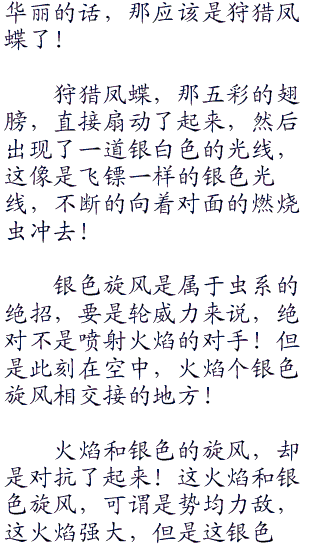 华丽的话，那应该是狩猎凤
蝶了！
狩猎凤蝶，那五彩的翅
膀，直接扇动了起来，然后
出现了一道银白色的光线，
这像是飞镖一样的银色光
线，不断的向着对面的燃烧
虫冲去！
银色旋风是属于虫系的
绝招，要是轮威力来说，绝
对不是喷射火焰的对手！但
是此刻在空中，火焰个银色
旋风相交接的地方！
火焰和银色的旋风，却
是对抗了起来！这火焰和银
色旋风，可谓是势均力敌，
这火焰强大，但是这银色